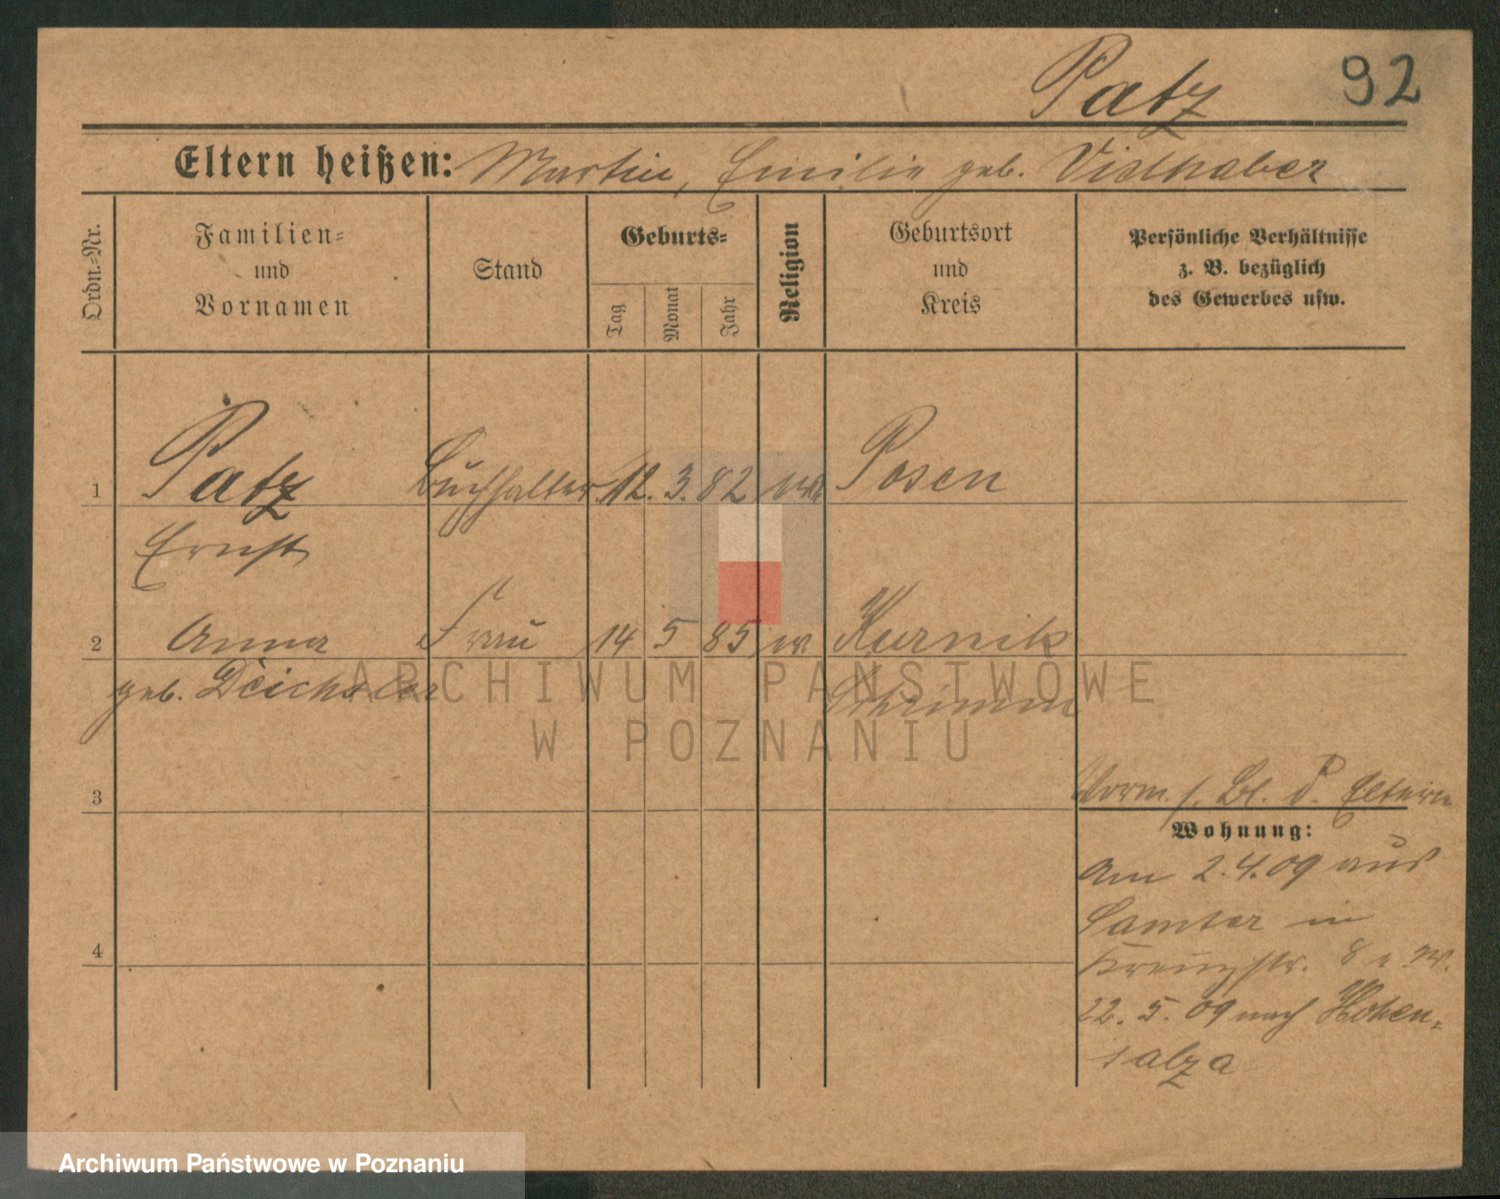 Patz 92
Eltern heißen: Martin, Emilie geb. Vielhaber
Ordn.-Nr.
Familien-
und
Vornamen
Stand
Geburts-
Tag
Monat
Jahr
Religion
Geburtsort
und
Kreis
Persönliche Verhältnisse
z. B. bezüglich
des Gewerbes usw.
1 Patz Buchhalter 12. 3. 82 Posen
Ernst
2 Anna Frau 14 5 85 Kurnik
geb. Deichsler Schrimm
3 Vorm. s. Bl. d. Eltern
Wohnung:
Am 2.4.09 aus
Samter in
4 Kreuzstr. 8
22. 5. 09 nach Hohen-
salza
ARCHIWUM PAŃSTWOWE
W POZNANIU
Archiwum Państwowe w Poznaniu